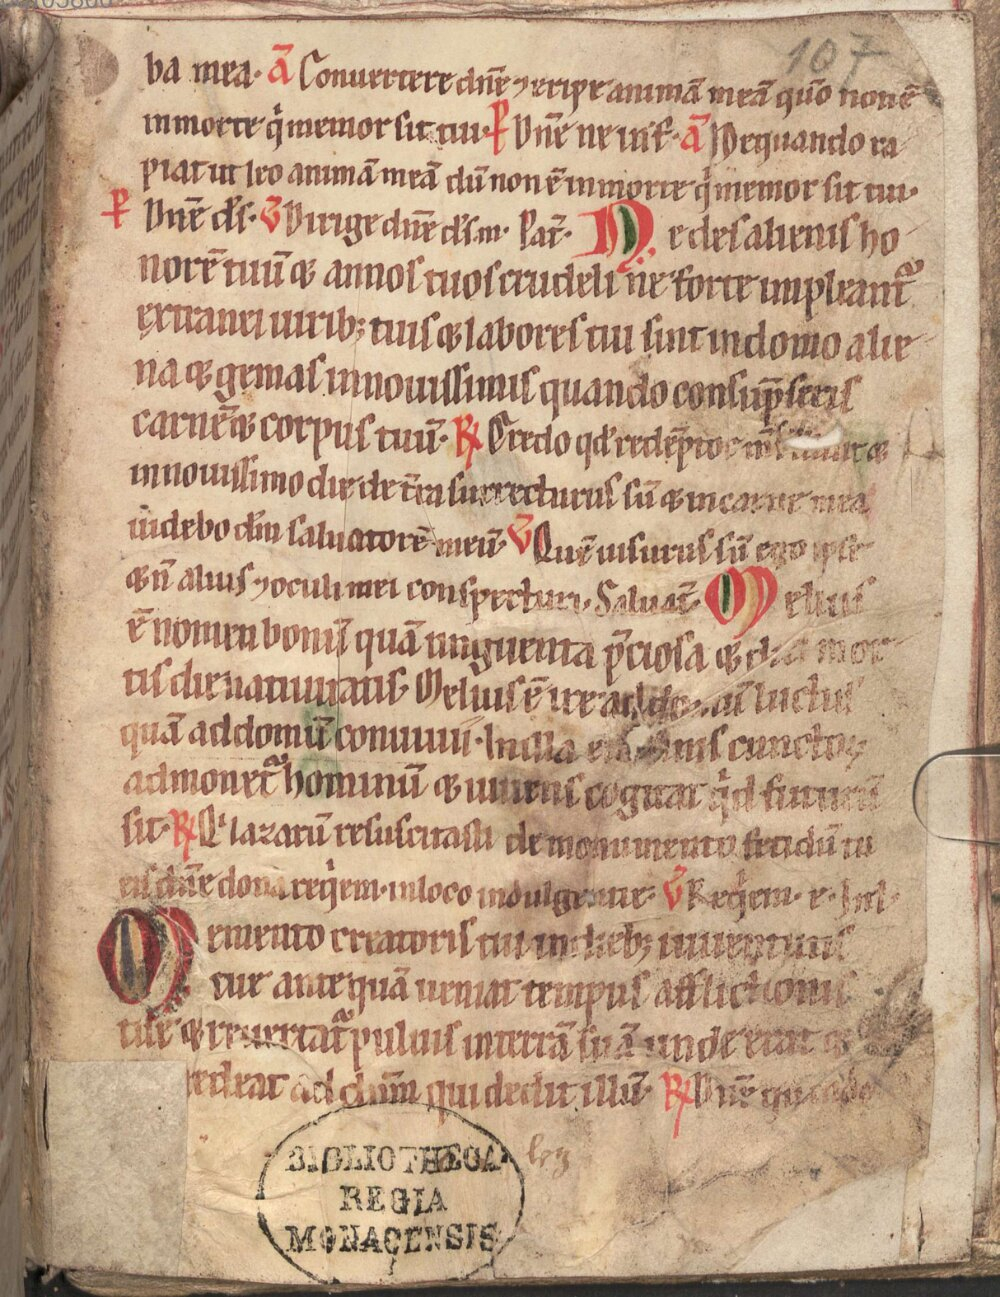 107
ba mea· A̅ Conuertere dn̅e ⁊ eripe animā meā quō non ē
in morte qͥ memor sit tui· P̅ Dn̅e ne in f̅· A̅ Nequando ra
piat ut leo animā meā dū non ē in morte qͥ memor sit tui·
P̅ Dn̅e ds̅· V̅ Dirige dn̅e ds̅ m· Pat̅· Ne des alienis ho
norē tuū & annos tuos crudeli ne forte impleant᷑
extranei uirib; tuis & labores tui sint in domo alie
na & gemas in nouissimis quando consūpseris
carnē & corpus tuū· R̅ Credo qd̅ redēptor ms̅ uiuit &
in nouissimo die de tr̅a surrecturus sū & in carne mea
uidebo dm̅ saluatorē meū· V̅ Quē uisurus sū ego ipse
& n̅ alius ⁊ oculi mei conspecturi· Saluat̅· Melius
ē nomen bonū quā unguenta p̅ciosa & dies mor
tis die natiuitatis· Melius ē ire ad domū luctus
quā ad domū conuiuii· In illa enim finis cunctoꝝ
admonet᷑ hominū & uiuens cogitat qͥd futurū
sit· R̅ Qͥ lazarū resuscitasti de monumento fetidū tu
eis dn̅e dona reqͥem· in loco indulgentie· V̅ Reqͥem· e·
Memento creatoris tui in dieb; iuuentutis
tue antequā ueniat tempus afflictionis
tue & reuertat᷑ puluis in terrā suā unde erat &
redeat ad dm̅ qui dedit illū· R̅ Dn̅e qn̅ u
BIBLIOTHECA
REGIA
MONACENSIS